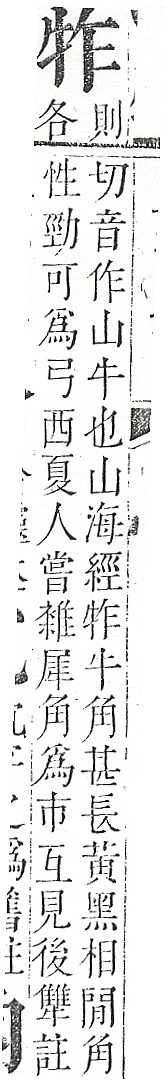 㸲
則
各
切音作山牛也山海經㸲牛角甚長黃黑相閒角
性勁可爲弓西夏人嘗雜犀角爲市互見後犨註